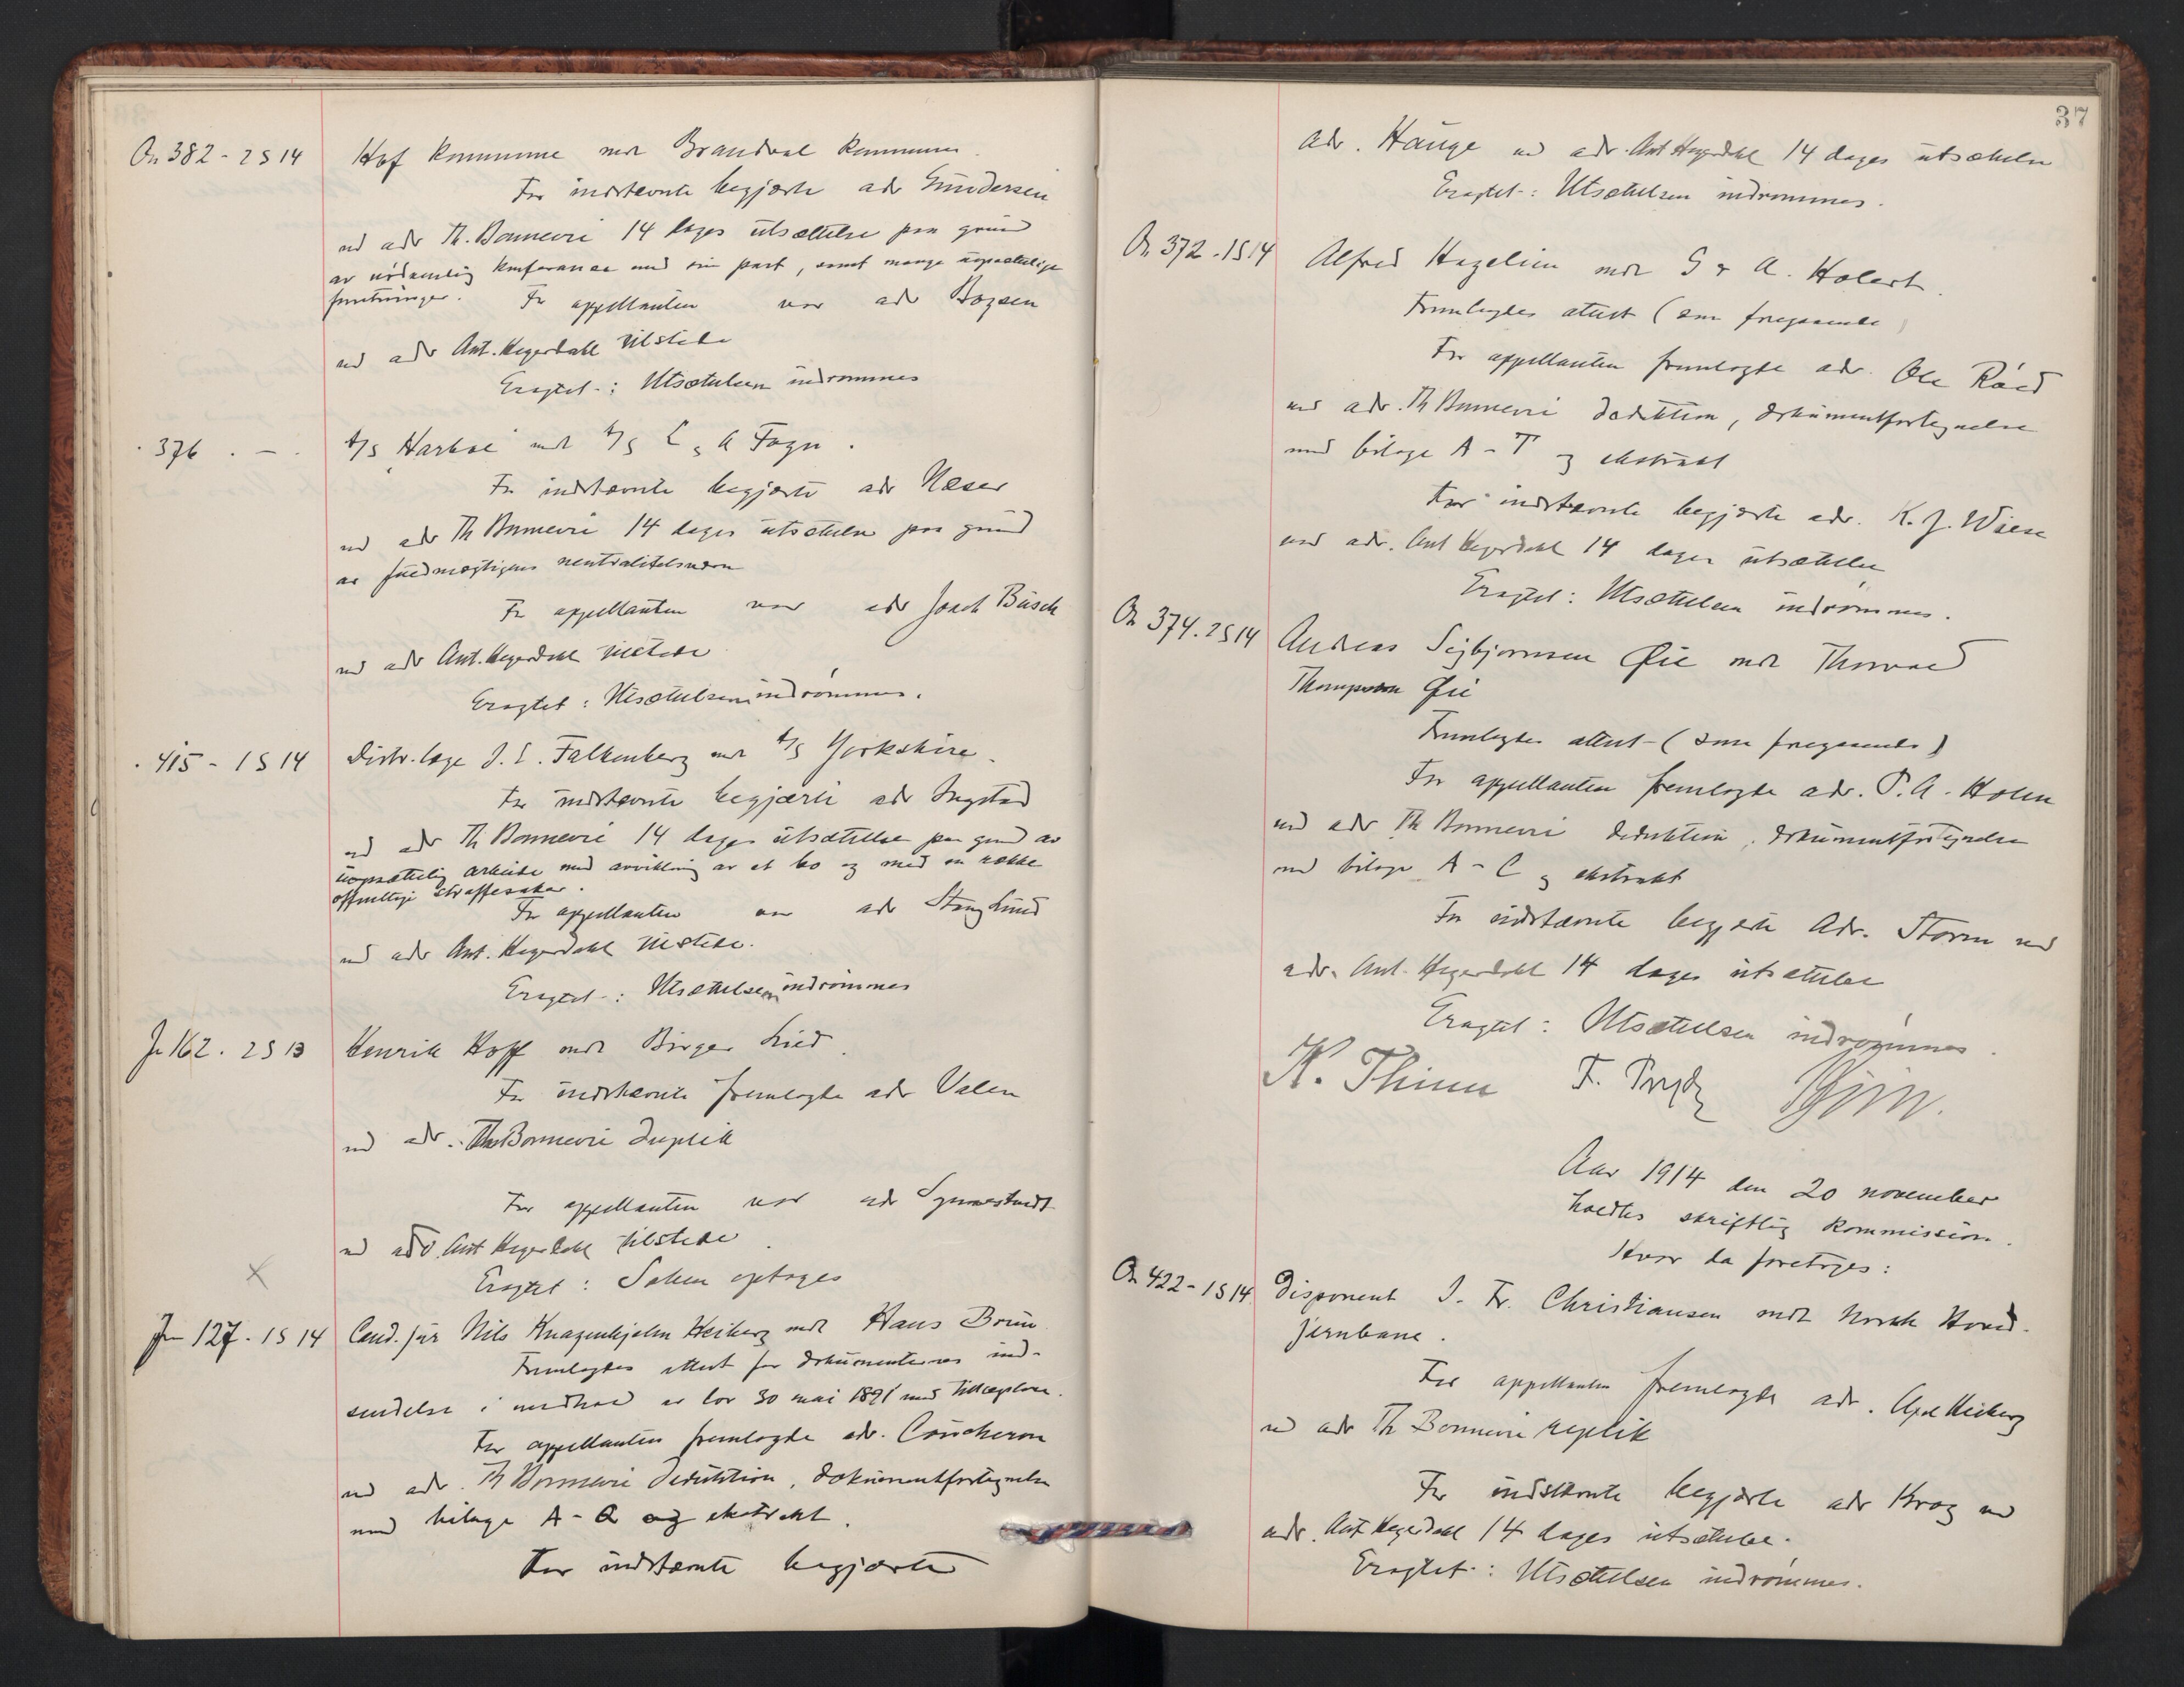 On 382 - 2 S 14 Hof kommune mot Brandval kommune.
For indstevnte begjærte adv Gundersen
ved adv Th. Bonnevie 14 dages utsættelse paa grund
av nødvendig konferanse med sin part, samt mange uopsættelige
forretninger. For appellanten var adv Boysen
ved adv Ant. Hegerdahl tilstede
Eragtet: Utsættelsen indrømmes
" 376 . - . A/S Harboe mot A/S L & A Fogn.
For indstevnte begjærte adv Næser
ved adv Th Bonnevie 14 dages utsættelse paa grund
av fuldmægtigens neutralitetsværn
For appellanten var adv Joach Busch
ved adv Ant. Hegerdahl tilstede
Eragtet: Utsættelsen indrømmes.
" 415 - 1 S 14 Distr.læge J. E. Falkenberg mot A/S Yorkshire.
For indstevnte begjærte adv Ingstad
ved adv Th Bonnevie 14 dages utsættelse paa grund av
uopsættelig arbeide med avvikling av et bo og med en række
offentlige straffesaker.
For appellanten var adv Stang Lund
ved adv Ant. Hegerdahl tilstede.
Eragtet: Utsættelsen indrømmes
Jn 162 . 2 S 13 Henrik Hoff mot Birger Lied.
For indstevnte fremlagte adv Valen
ved adv. Th Bonnevie duplik
For appellanten var adv Synnestvedt
ved adv. Ant Hegerdahl tilstede.
Eragtet: Saken optages
X
Jn 127 . 1 S 14 Cand. jur Nils Knagenhjelm Heiberg mot Hans Brun
Fremlagdes attest for dokumenternes ind-
sendelse i medhold av lov 30 mai 1891 med tillægslov.
For appellanten fremlagde adv. Coucheron
ved adv. Th Bonnevie deduktion, dokumentfortegnelse
med bilage A - Q og ekstrakt.
For indstevnte begjærte
37
adv. Hauge ved adv. Ant Hegerdahl 14 dages utsættelse
Eragtet: Utsættelsen indrømmes.
On 372 . 1 S 14 Alfred Hagelien mot G & A. Holert.
Fremlagdes attest (som foregaaende)
For appellanten fremlagde adv. Ole Røed
ved adv. Th Bonnevie deduktion, dokumentfortegnelse
med bilage A - T og ekstrakt
For indstevnte begjærte adv. K. J. Wiese
ved adv. Ant Hegerdahl 14 dages utsættelse
Eragtet: Utsættelsen indrømmes.
On 374 . 2 S 14 Andreas Sigbjørnsen Øie mot Thorvald
Thompson Øie
Fremlagdes attest (som foregaaende)
For appellanten fremlagde adv. P. A. Holm
ved adv Th Bonnevie deduktion, dokumentfortegnelse
med bilage A - C og ekstrakt
For indstevnte begjærte Adv. Storm ved
adv. Ant. Hegerdahl 14 dages utsættelse
Eragtet: Utsættelsen indrømmes.
K. Thinn F. Prydz
Aar 1914 den 20 november
holdtes skriftlig kommission.
Hvor da foretoges:
On 422 - 1 S 14 Disponent J. Fr. Christiansen mot Norsk Hoved-
jernbane.
For appellanten fremlagde adv. Axel Heiberg
ved adv Th Bonnevie replik
For indstevnte begjærte adv Krag ved
adv. Ant Hegerdahl 14 dages utsættelse.
Eragtet: Utsættelsen indrømmes.